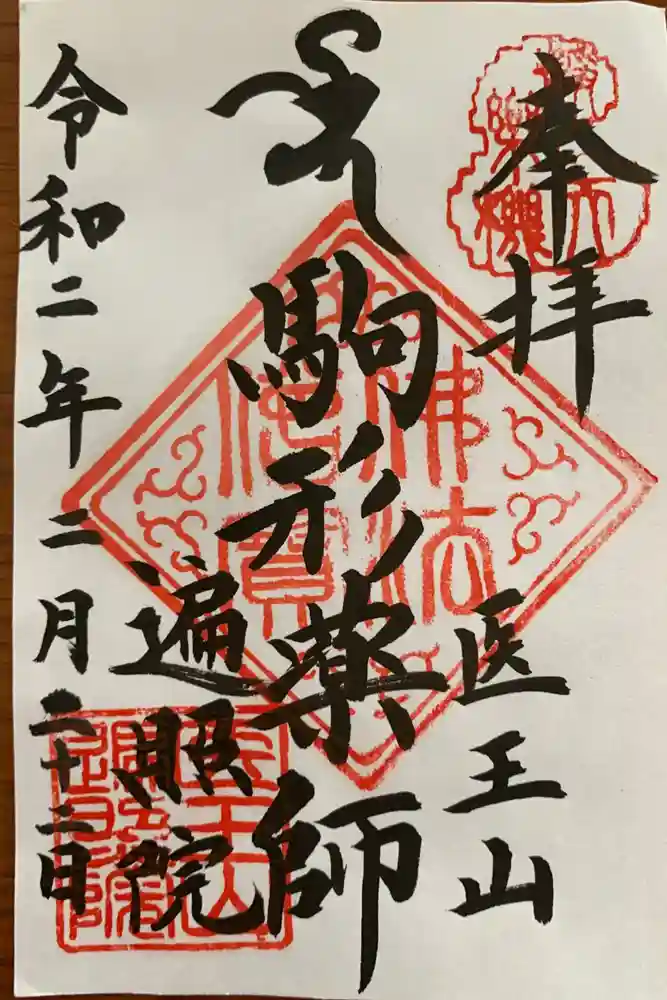 奉拝
医王山
駒形薬師
遍照院
令和二年二月二十二日
佛法
僧寳